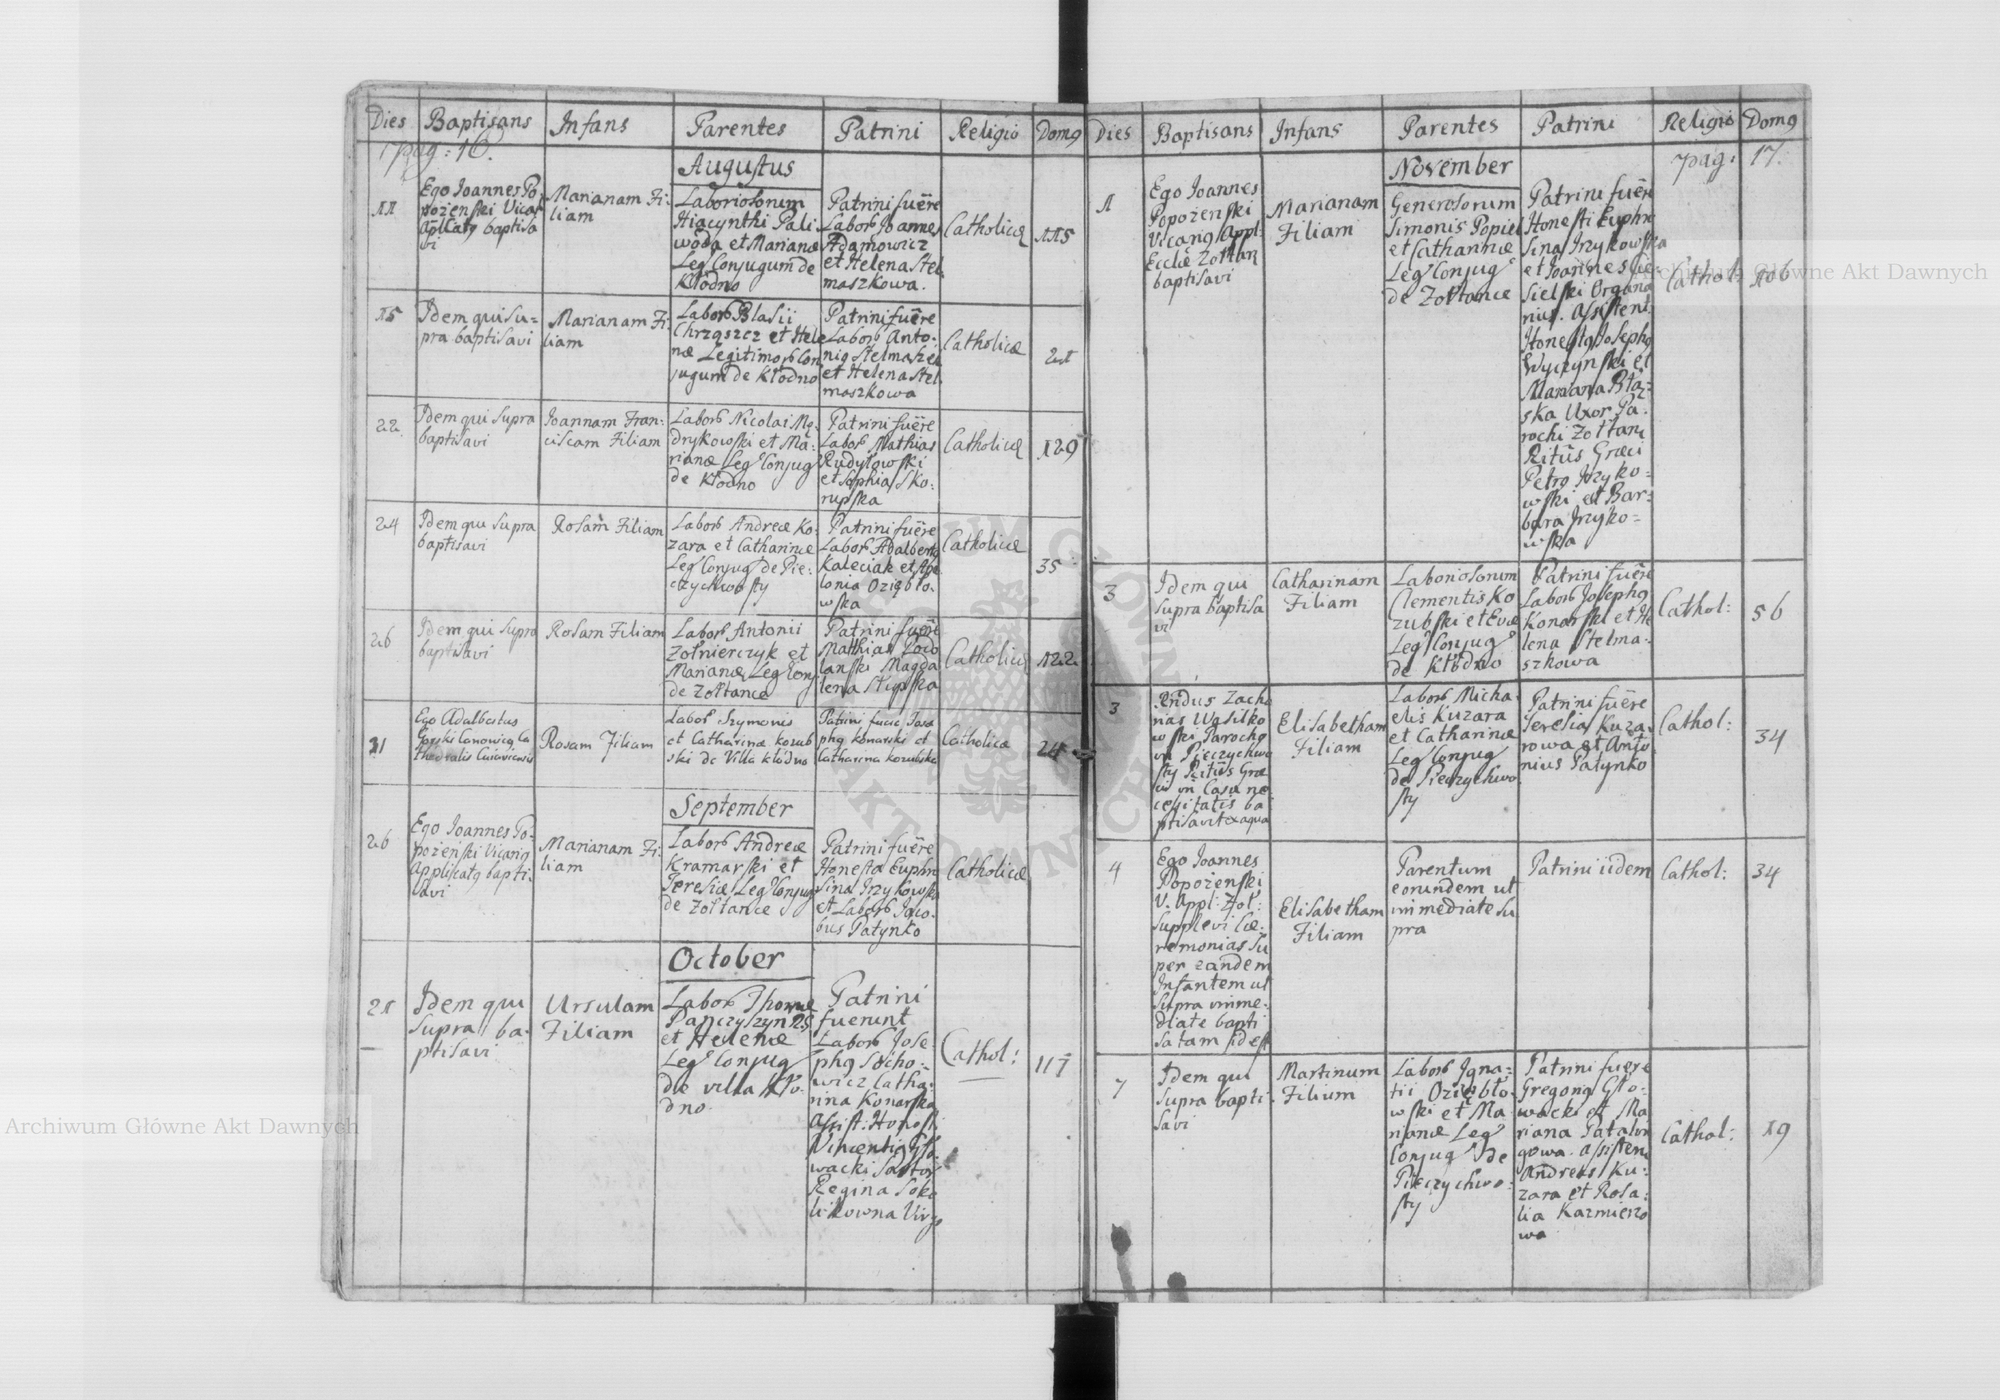 Dies Baptisans Infans Parentes Patrini Religio Domg
pag: 16.
Augustus
11
Ego Joannes Po-
pożenski Vicarg
Applicatg baptisa
vi
Marianam Fi-
liam
Laboriosorum
Hiacynthi Pali
woda et Marianæ
Leg Conjugum de
Kłodno
Patrini fuēre
Labor Joannes
Adamowicz
et Helena Stel
maszkowa.
Catholicæ
115
15
Idem qui su=
pra baptisavi
Marianam Fi-
liam
Labors Blasii
Chrząszcz et Hele
næ Legitimors Con
jugum de Kłodno
Patrini fuēre
Labors Anto-
nig Stelmaszek
et Helena Stel
maszkowa
Catholicæ
21
22
Idem qui supra
baptisavi
Joannam Fran-
ciscam Filiam
Labors Nicolai Mą-
drykowski et Ma-
rianæ Leg Conjug
de Kłodno
Patrini fuēre
Labors Mathias
Rudyłowski
et Sophia Sko-
rupska
Catholicæ
129
24
Idem qui supra
baptisavi
Rosam Filiam
Labors Andreæ Ko-
zara et Catharinæ
Leg Conjug de Pie-
czychwosty
Patrini fuēre
Labors Adalbertg
Kaleciak et Apo
lonia Oziębło-
wska
Catholicæ
35
26
Idem qui supra
baptisavi
Rosam Filiam
Labors Antonii
Zołnierczyk et
Marianæ Leg Conj
de Zołtance
Patrini fuēre
Matthias
Magda
lena
Catholicæ
122
31
Ego Adalbertus
Gorski Canonicg Ca
thedralis
Rosam Filiam
Labors Szymonis
et Catharinæ kozub
ski de Villa kłodno
Patrini fuere Jose
phg konarski et
Catharina kozubska
Catholicæ
24
September
26
Ego Joannes Po-
pożenski Vicarig
Applicatg bapti-
savi
Marianam Fi-
liam
Labors Andreæ
Kramarski et
Teresiæ Leg Conjug
de Zołtance
Patrini fuēre
Honesta Euphro
sina Jrzykowska
et Labors Jaco-
bus Patynko
Catholicæ
October
21
Idem qui
supra ba-
ptisavi
Ursulam
Filiam
Labors Thomæ
Panczyszyn
et Helenæ
Leg Conjug
de villa Kło-
dno
Patrini
fuerunt
Labors Jose
phg Socho-
wicz Catha-
rina Konarska
Assist: Honesti
Vincentig Gło-
wacki Sartor
Regina Soko
likowna Virgo
Cathol:
117
Dies Baptisans Infans Parentes Patrini Religio Domg
pag: 17.
November
1
Ego Joannes
Popożenski
Vicarig Appl:
Ecclæ Zołtan
baptisavi
Marianam
Filiam
Generosorum
Simonis Popiel
et Catharinæ
Leg Conjug
de Zołtance
Patrini fuēre
Honesti Euphro
sina Jrzykowska
et Joannes Cie-
sielski Organa
rius. Assistent.
Honestg Josephg
Wyczynski et
Mariana
ska Uxor Pa-
rochi Zołtani
Ritūs Græci
Petrg Jrzyko-
wski et Bar-
bara Jrzyko-
wska
Cathol:
106
3
Idem qui
supra baptisa
vi
Catharinam
Filiam
Laboriosorum
Clementis Ko
zubski et Evæ
Leg Conjug
de Kłodno
Patrini fuēre
Labors Josephg
Konarski et He
lena Stelma-
szkowa
Cathol:
56
3
Rndus Zacha
rias Wasilko
wski Parochg
in Pieczychwo
sty Ritūs Græ
ci in Casu ne
cessitatis ba
ptisavit ex aqua
Elisabetham
Filiam
Labors Micha
elis Kuzara
et Catharinæ
Leg Conjug
de Pieczychwo
sty
Patrini fuēre
Teresia Kuza-
rowa et Anto
nius Patynko
Cathol:
34
4
Ego Joannes
Popożenski
V. Appl: Zoł:
supplevi Cæ-
remonias su
per eandem
Infantem ut
supra imme-
diate bapti
satam idest
Elisabetham
Filiam
Parentum
eorundem ut
immediate su
pra
Patrini iidem
Cathol:
34
7
Idem qui
supra bapti-
savi
Martinum
Filium
Labors Igna-
tii Oziębło-
wski et Ma
rianæ Leg
Conjug de
Pieczychwo-
sty
Patrini fuere
Gregorig Gło-
wacki et Ma
riana Patalon
gowa. Assistent
Andreas Ku-
zara et Rosa-
lia Kazmierzo
wa
Cathol:
19
Archiwum Główne Akt Dawnych
Archiwum Główne Akt Dawnych